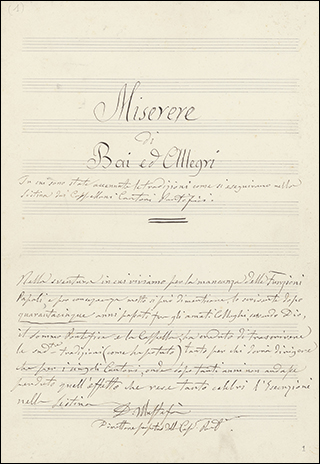 (1)
Miserere
di
Bai ed Allegri
In cui sono state accennate le tradizioni come si eseguivano nella
Sistina dai Cappellani Cantori Pontificii.
Nella sventura in cui viviamo per la mancanza delle Funzioni
Papali e per conseguenza molto si può dimenticare, lo scrivente dopo
quarantacinque anni passati fra gli amati Colleghi, servendo Dio,
il sommo Pontefice e la Cappella, ha creduto di trascrivere
le sud.e tradizioni (come ha potuto) tanto per chi dovrà dirigere
che per i singoli Cantori, onde dopo tanti anni non andasse
perduto quell'effetto che rese tanto celebre l'Esecuzione
nella Sistina
D. Mustafà
Direttore perpetuo